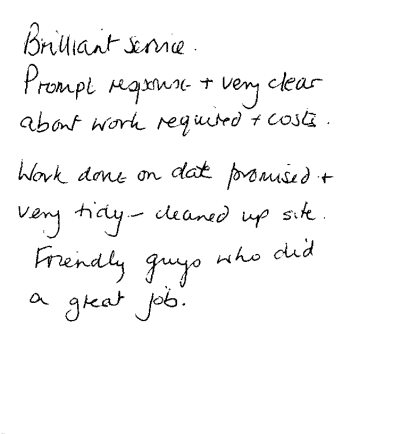 Brilliant service.
Prompt response + very clear
about work required + costs.
Work done on date promised +
very tidy - cleaned up site.
Friendly guys who did
a great job.